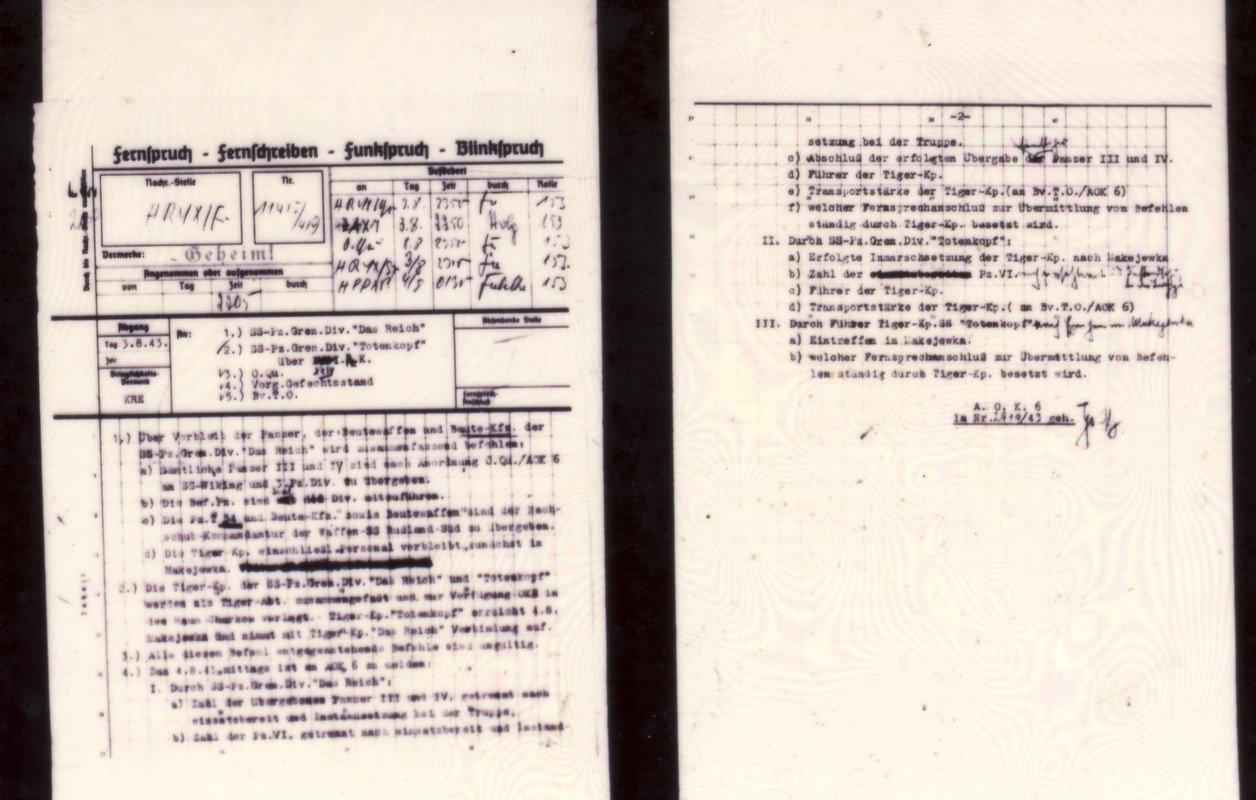 Fernspruch - Fernschreiben - Funkspruch - Blinkspruch
Nachr.-Stelle
Nr.
Befördert
an Tag Zeit durch Rolle
153
3.8. 2350 153
153
3/8 153
4/8 0130 153
Vermerke: Geheim!
Angenommen oder aufgenommen
von Tag Zeit durch
2205
Abgang
Tag 3.8.43.
Zeit
Dringlichkeits-
Vermerk
KRE
An: 1.) SS-Pz.Gren.Div."Das Reich"
2.) SS-Pz.Gren.Div."Totenkopf"
über A.K.
3.) O.Qu.
4.) Vorg.Gefechtsstand
5.) Bv.T.O.
Absendende Stelle
1.) Über Verbleib der Panzer, der Beutewaffen und Beute-Kfz. der
SS-Pz.Gren.Div."Das Reich" wird zusammenfassend befohlen:
a) Sämtliche Panzer III und IV sind nach Anordnung O.Qu./AOK 6
an SS-Wiking und 3.Pz.Div. zu übergeben.
b) Die Bef.Pz. sind Div. mitzuführen.
c) Die Pz. und Beute-Kfz. sowie Beutewaffen sind der Nach-
schub-Kommandantur der Waffen-SS Rußland-Süd zu übergeben.
d) Die Tiger-Kp. einschließl.Personal verbleibt zunächst in
Makejewka.
2.) Die Tiger-Kp. der SS-Pz.Gren.Div."Das Reich" und "Totenkopf"
werden als Tiger-Abt. zusammengefaßt und zur Verfügung OKH in
den Raum Charkow verlegt. Tiger-Kp."Totenkopf" erreicht 4.8.
Makejewka und nimmt mit Tiger-Kp."Das Reich" Verbindung auf.
3.) Alle diesem Befehl entgegenstehende Befehle sind ungültig.
4.) Zum 4.8.43,mittags ist an AOK 6 zu melden:
I. Durch SS-Pz.Gren.Div."Das Reich":
a) Zahl der übergebenen Panzer III und IV, getrennt nach
einsatzbereit und Instandsetzung bei der Truppe,
b) Zahl der Pz.VI, getrennt nach einsatzbereit und Instand-
-2-
-2-
setzung bei der Truppe.
c) Abschluß der erfolgten Übergabe der Panzer III und IV.
d) Führer der Tiger-Kp.
e) Transportstärke der Tiger-Kp.(an Bv.T.O./AOK 6)
f) welcher Fernsprechanschluß zur Übermittlung von Befehlen
ständig durch Tiger-Kp. besetzt wird.
II. Durch SS-Pz.Gren.Div."Totenkopf":
a) Erfolgte Inmarschsetzung der Tiger-Kp. nach Makejewka
b) Zahl der Pz.VI.
c) Führer der Tiger-Kp.
d) Transportstärke der Tiger-Kp.( an Bv.T.O./AOK 6)
III. Durch Führer Tiger-Kp.SS "Totenkopf" in Makejewka
a) Eintreffen in Makejewka.
b) welcher Fernsprechanschluß zur Übermittlung von Befeh-
len ständig durch Tiger-Kp. besetzt wird.
A. O. K. 6
Ia Nr. /43 geh.